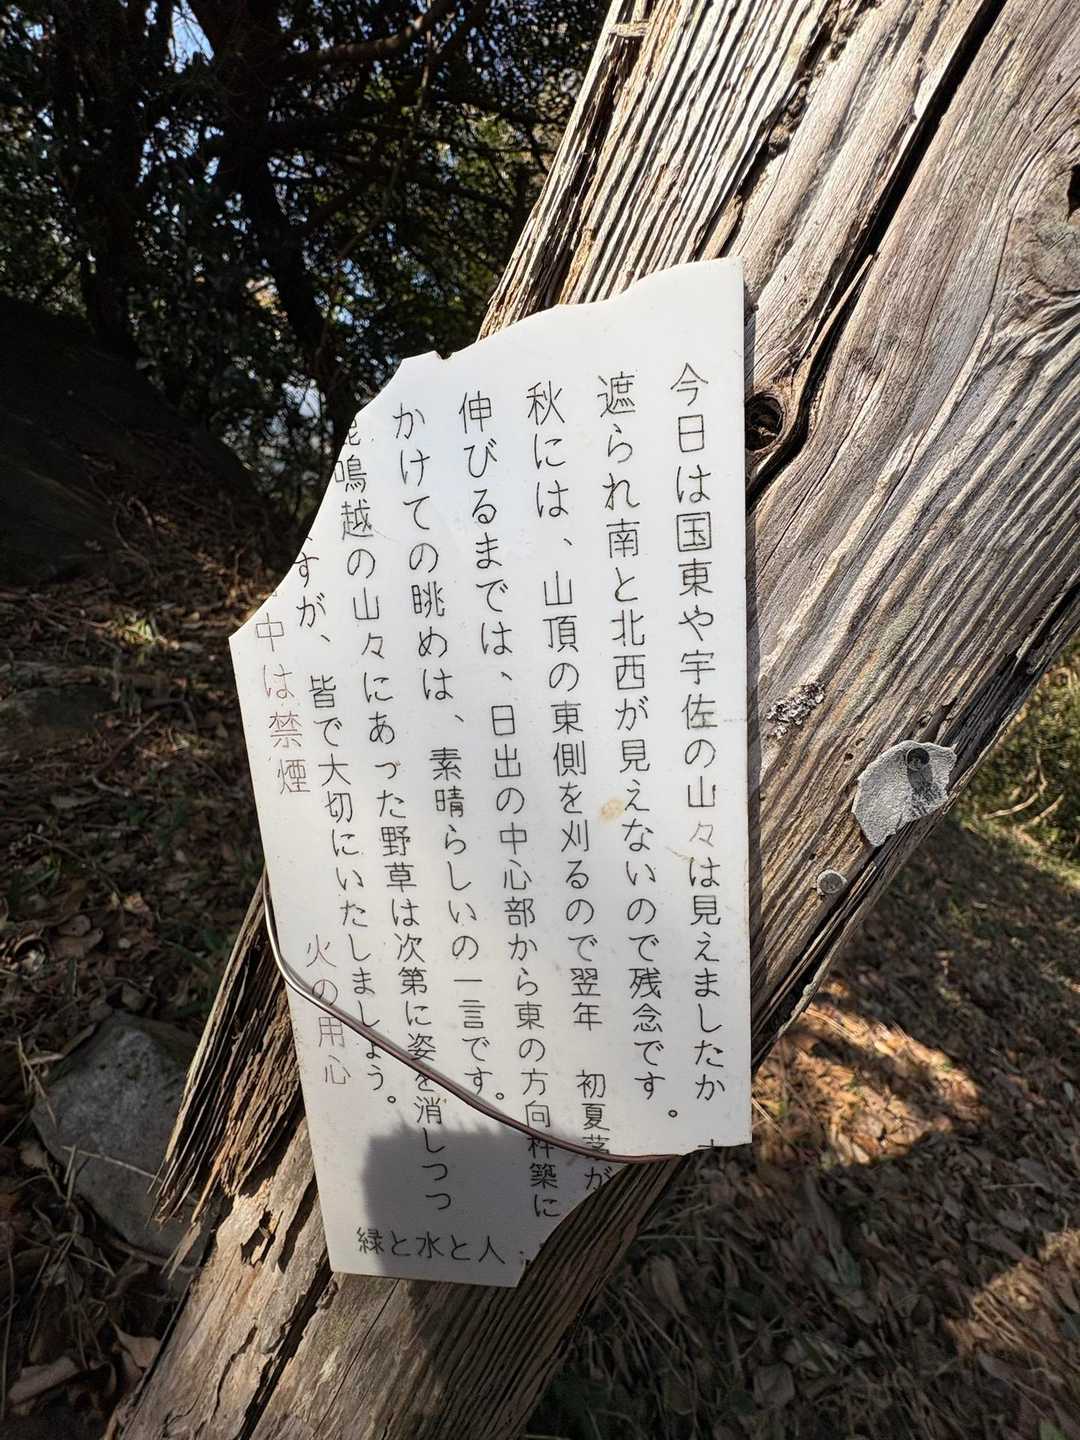 今日は国東や宇佐の山々は見えましたか
遮られ南と北西が見えないので残念です。
秋には、山頂の東側を刈るので翌年 初夏茅が
伸びるまでは、日出の中心部から東の方向杵築に
かけての眺めは、素晴らしいの一言です。
鹿鳴越の山々にあった野草は次第に姿を消しつつ
すが、皆で大切にいたしましょう。
中は禁煙 火の用心
緑と水と人